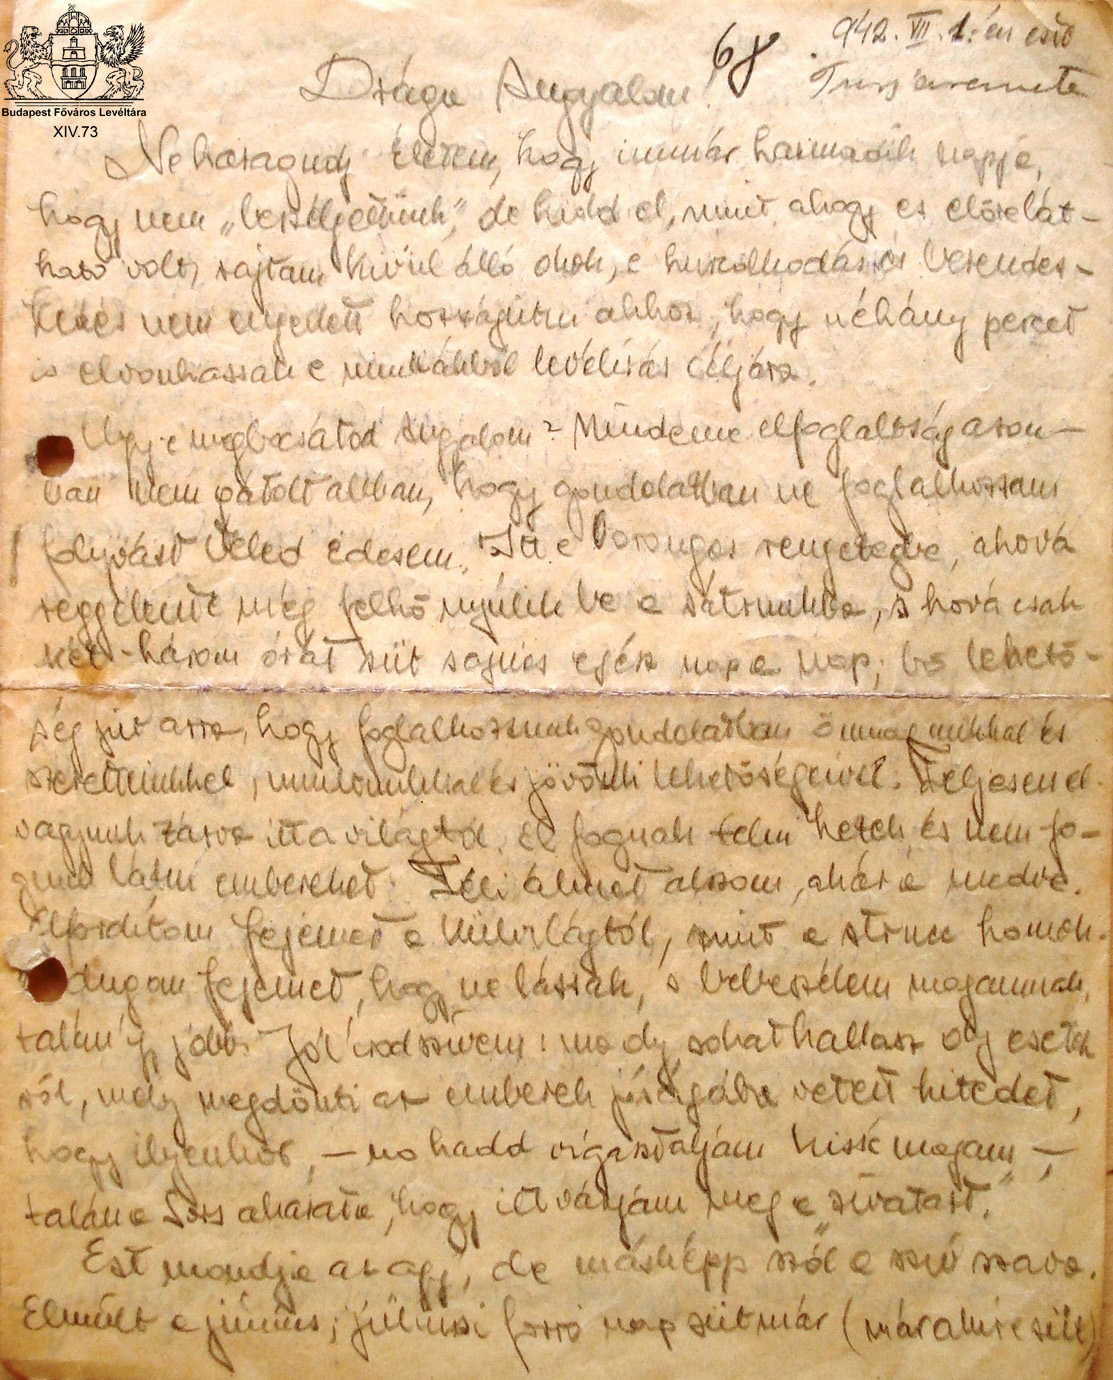 Budapest Főváros Levéltára
XIV.73
68
942. VII. 1.-én
Drága Angyalom!
Ne haragudj Életem, hogy immár harmadik napja,
hogy nem „beszélgettünk”, de hidd el, mint ahogy ez előrelát-
ható volt, rajtam kívül álló okok, a hurcolkodás és berendez-
kedés nem engedett hozzájutni ahhoz, hogy néhány percet
is elvonhassak a munkából levélírás céljára.
Ugye megbocsátod Angyalom? Mindeme elfoglaltság azon-
ban nem gátolt abban, hogy gondolatban ne foglalkozzam
folyvást Veled édesem. Itt a rengetegbe, ahová
reggelente még felhő nyúlik be a sátrunkba, s hová csak
két-három órát süt sajnos egész nap a nap, bő lehető-
ség jut arra, hogy foglalkozzunk gondolatban önmagunkkal és
szeretteinkkel, multunkkal és jövőnk lehetőségeivel. Teljesen el
vagyunk zárva itt a világtól. El fognak telni hetek és nem fo-
gunk látni embereket. Téli álmot alszom, akár a medve.
Elfordítom fejemet a külvilágtól, mint a strucc homok-
dugom fejemet, hogy ne lássak, s bebeszélem magamnak,
talán így jobb. Jól van szivem: ma oly sokat hallasz oly esetek-
ről, mely megdönti az emberek jóságába vetett hitedet,
hogy ilyenkor, – no hadd vigasztaljam kissé magam –,
talán a Sors akarata, hogy itt várjam meg a „zivatart”.
Ezt mondja az agy, de másképp szól a szív szava.
Elmúlt a június, júliusi forró nap süt már (már akire süt)